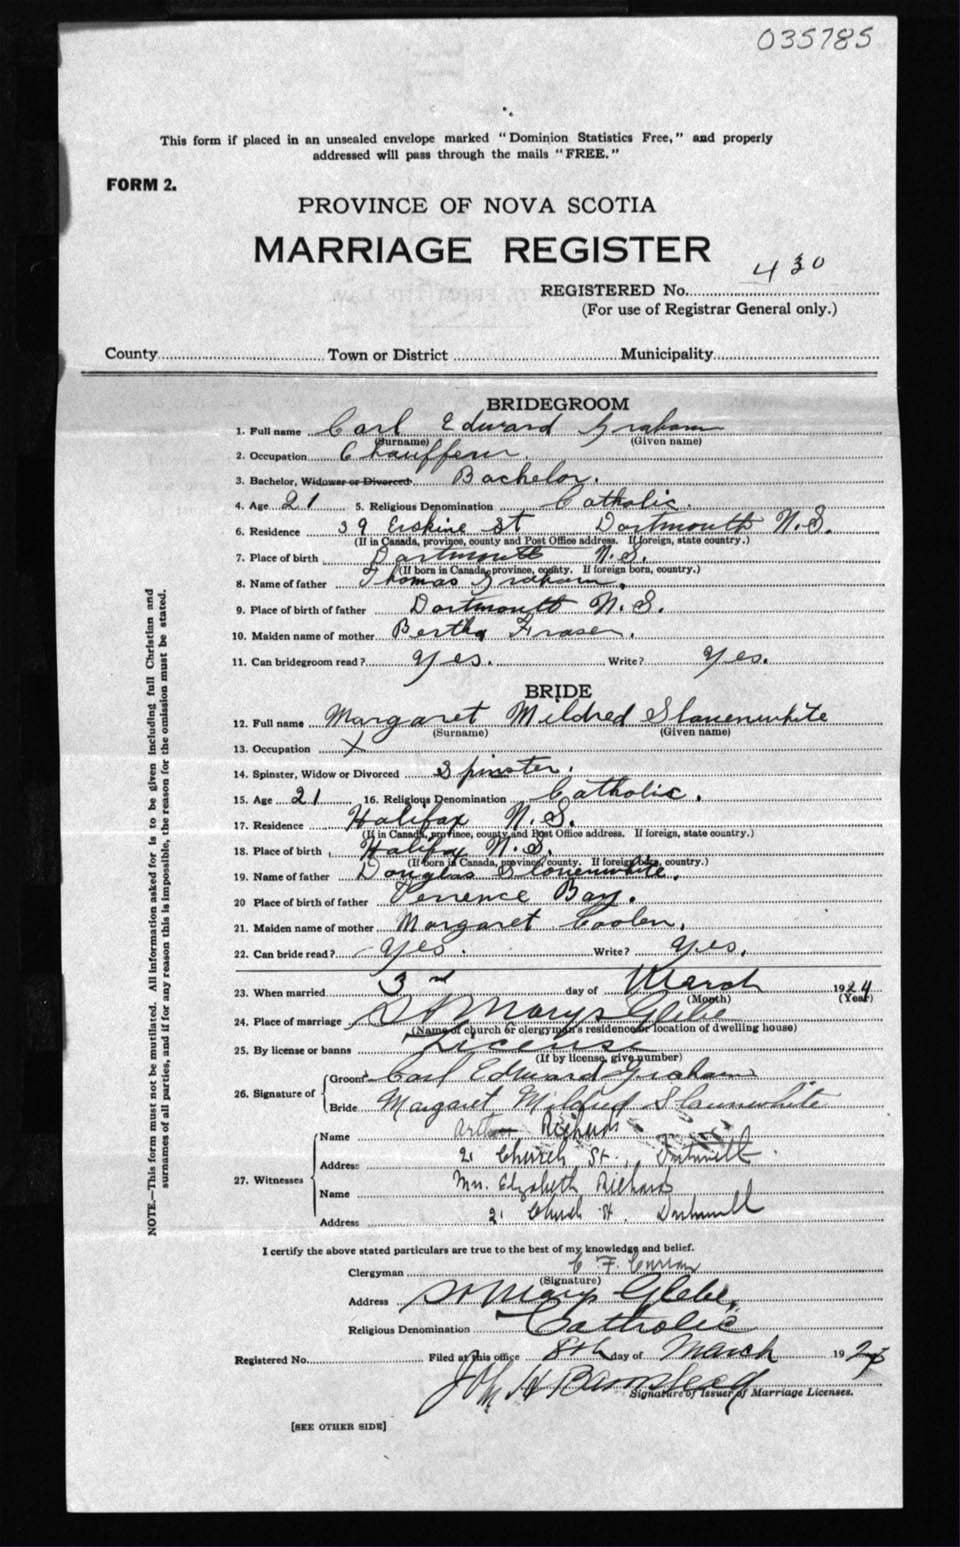 035785
This form if placed in an unsealed envelope marked "Dominion Statistics Free," and properly
addressed will pass through the mails "FREE."
FORM 2.
PROVINCE OF NOVA SCOTIA
MARRIAGE REGISTER
REGISTERED No. 430
(For use of Registrar General only.)
County Town or District Municipality
BRIDEGROOM
1. Full name Carl Edward Graham
(Surname) (Given name)
2. Occupation Chauffeur.
3. Bachelor, Widower or Divorced. Bachelor.
4. Age 21 5. Religious Denomination Catholic.
6. Residence 39 Erskine St Dartmouth N.S.
(If in Canada, province, county and Post Office address. If foreign, state country.)
7. Place of birth Dartmouth N.S.
(If born in Canada, province, county. If foreign born, country.)
8. Name of father Thomas Graham.
9. Place of birth of father Dartmouth N.S.
10. Maiden name of mother Bertha Fraser.
11. Can bridegroom read? Yes. Write? Yes.
BRIDE
12. Full name Margaret Mildred Slauenwhite
(Surname) (Given name)
13. Occupation X
14. Spinster, Widow or Divorced Spinster.
15. Age 21 16. Religious Denomination Catholic.
17. Residence Halifax N.S.
(If in Canada, province, county and Post Office address. If foreign, state country.)
18. Place of birth Halifax N.S.
(If born in Canada, province, county. If foreign born, country.)
19. Name of father Douglas Slauenwhite.
20 Place of birth of father Terrence Bay.
21. Maiden name of mother Margaret Coolen.
22. Can bride read? Yes. Write? Yes.
23. When married 3rd day of March 1924
(Month) (Year)
24. Place of marriage St Marys Glebe
(Name of church or clergyman's residence or location of dwelling house)
25. By license or banns License
(If by license, give number)
26. Signature of Groom Carl Edward Graham
Bride Margaret Mildred Slaunwhite
27. Witnesses
Name Arthur Richards
Address 21 Church St., Dartmouth
Name Mrs. Elizabeth Richards
Address 21 Church St. Dartmouth
I certify the above stated particulars are true to the best of my knowledge and belief.
Clergyman C. F. Curran
(Signature)
Address St Marys Glebe,
Religious Denomination Catholic
Registered No. Filed at this office 8th day of March 192
John H
Signature of Issuer of Marriage Licenses.
[SEE OTHER SIDE]
NOTE.—This form must not be mutilated. All information asked for is to be given including full Christian and
surnames of all parties, and if for any reason this is impossible, the reason for the omission must be stated.